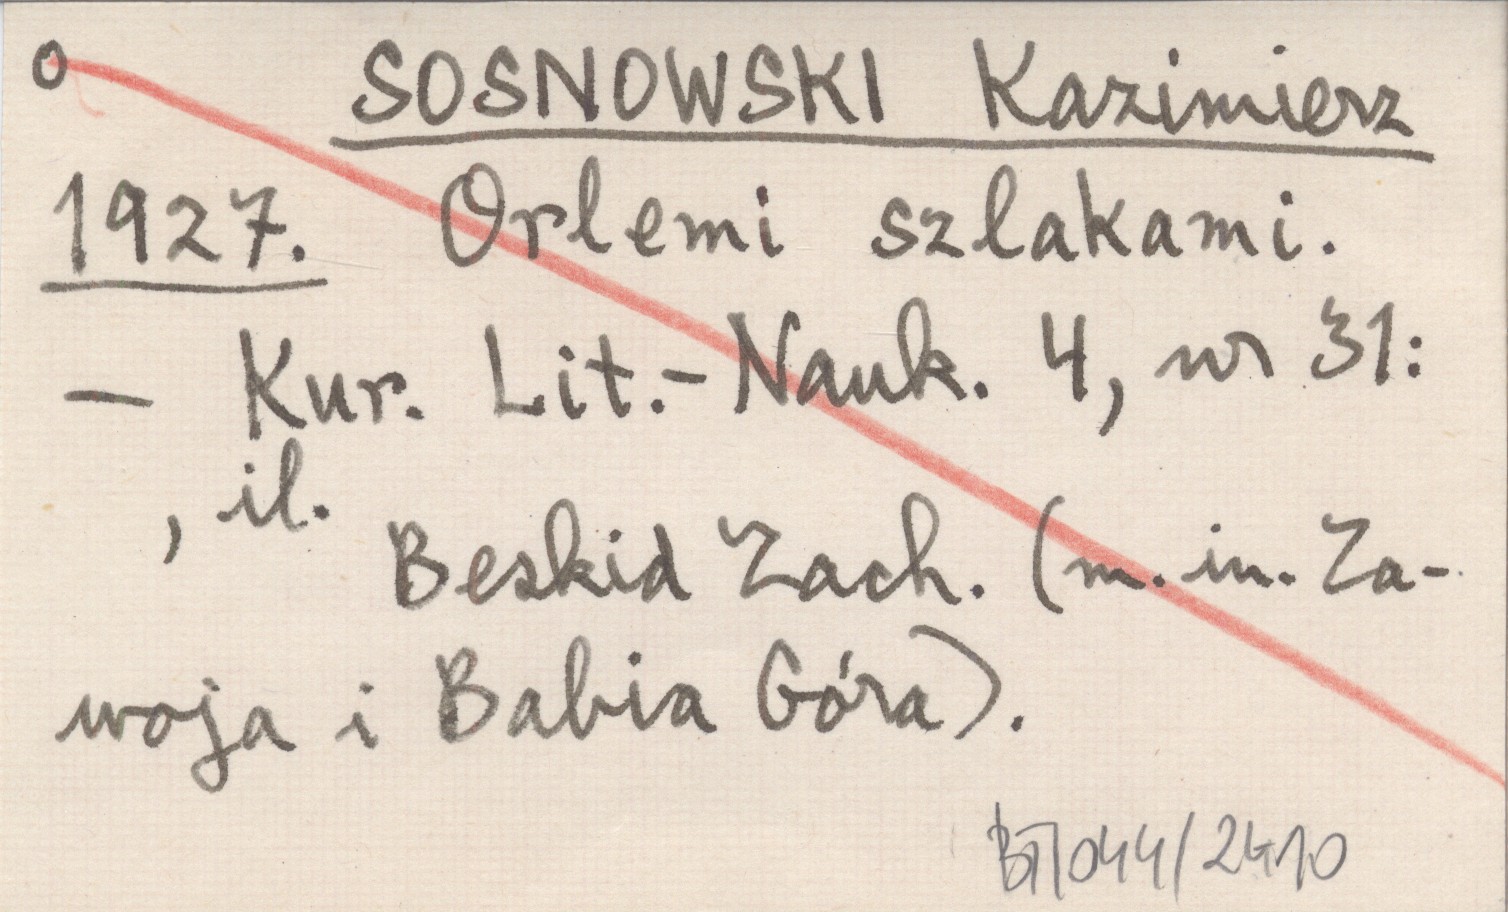 o SOSNOWSKI Kazimierz
1927. Orlemi szlakami.
— Kur. Lit.-Nauk. 4, nr 31:
, il.
Beskid Zach. (m. in. Za-
woja i Babia Góra).
BT/044/2410